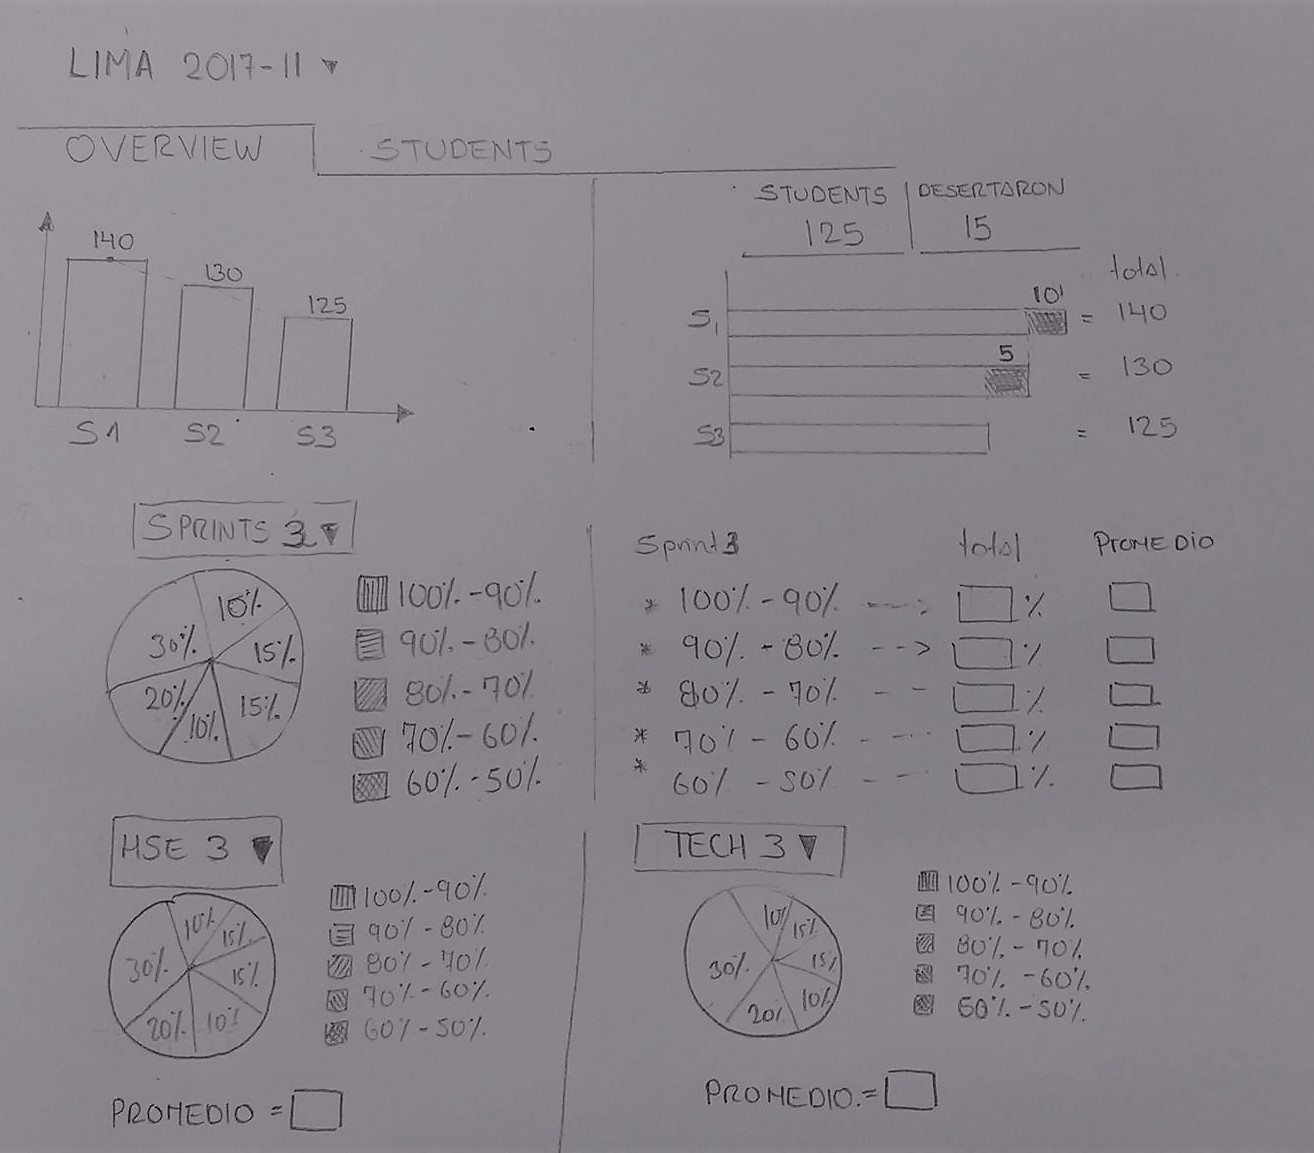 LIMA 2017-11 ▼
OVERVIEW STUDENTS
140
130
125
S1 S2 S3
STUDENTS DESERTARON
125 15
total
10
S1 = 140
5
S2 = 130
S3 = 125
SPRINTS 3 ▼
10%
15%
15%
10%
20%
30%
100%-90%
90%-80%
80%-70%
70%-60%
60%-50%
Sprint3 total PROMEDIO
* 100%-90% ---> %
* 90%-80% --> %
* 80%-70% -- %
* 70%-60% --- %
* 60%-50% --- %
HSE 3 ▼
10%
15%
15%
10%
20%
30%
100%-90%
90%-80%
80%-70%
70%-60%
60%-50%
PROMEDIO =
TECH 3 ▼
10%
15%
15%
10%
20%
30%
100%-90%
90%-80%
80%-70%
70%-60%
60%-50%
PROMEDIO.=